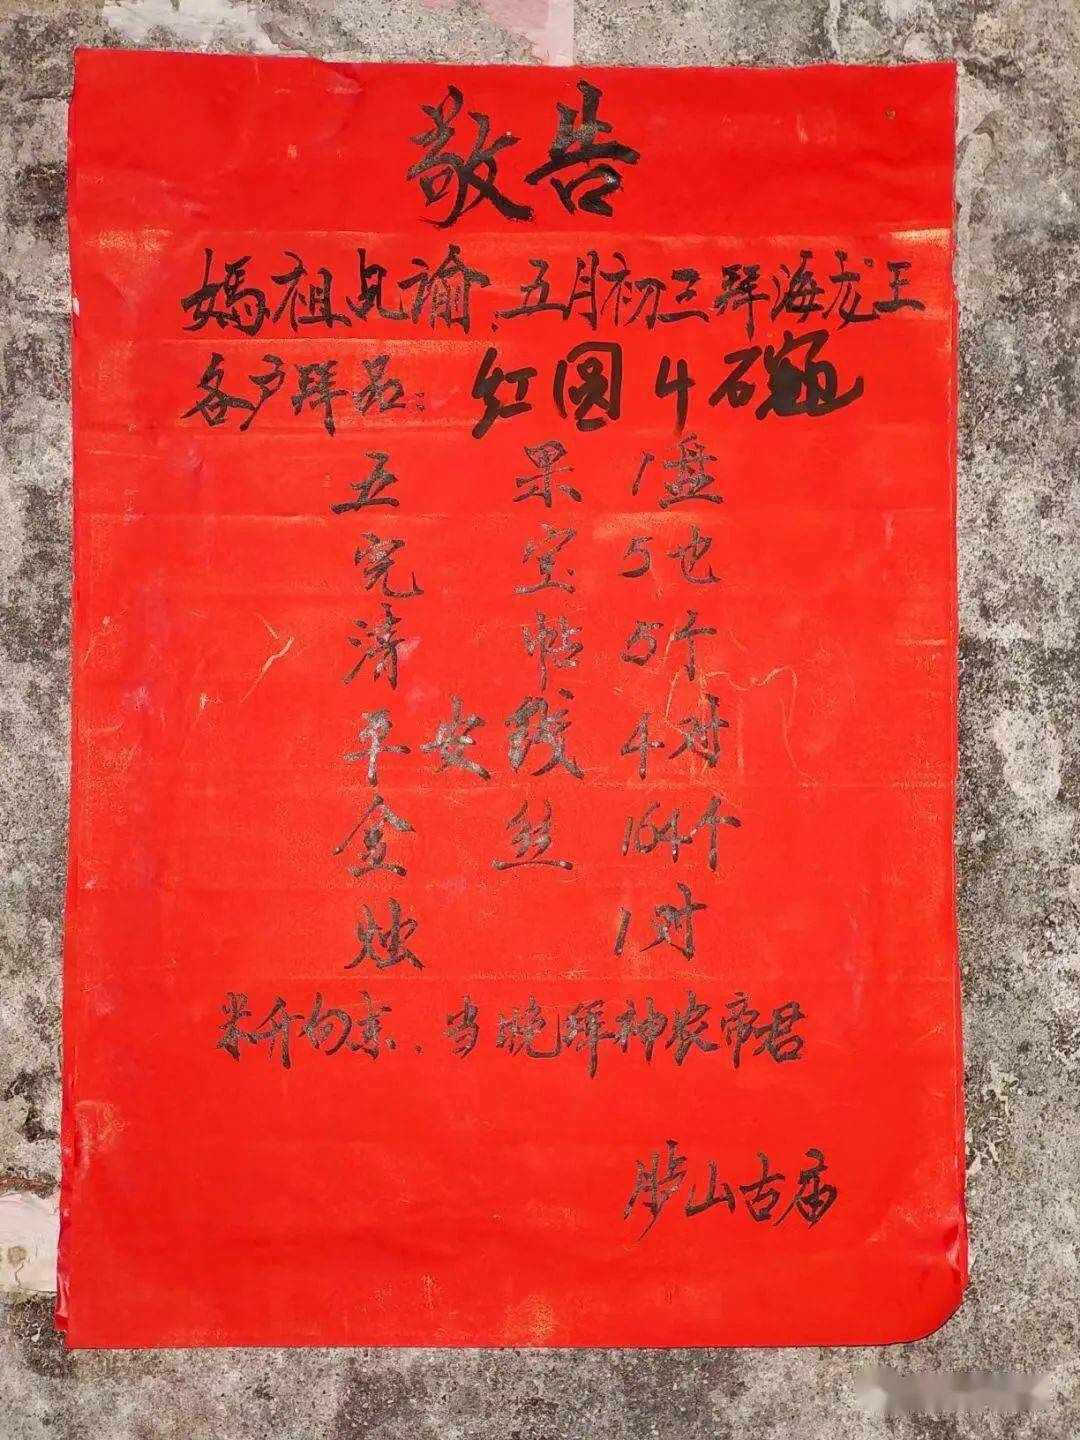 敬告
妈祖见谕:五月初三拜海龙王
各户拜品:红圆4碗
五果1盘
完宝5也
清帖5个
平安线4对
金丝164个
烛1对
米升勺未、当晚拜神农帝君
山古庙